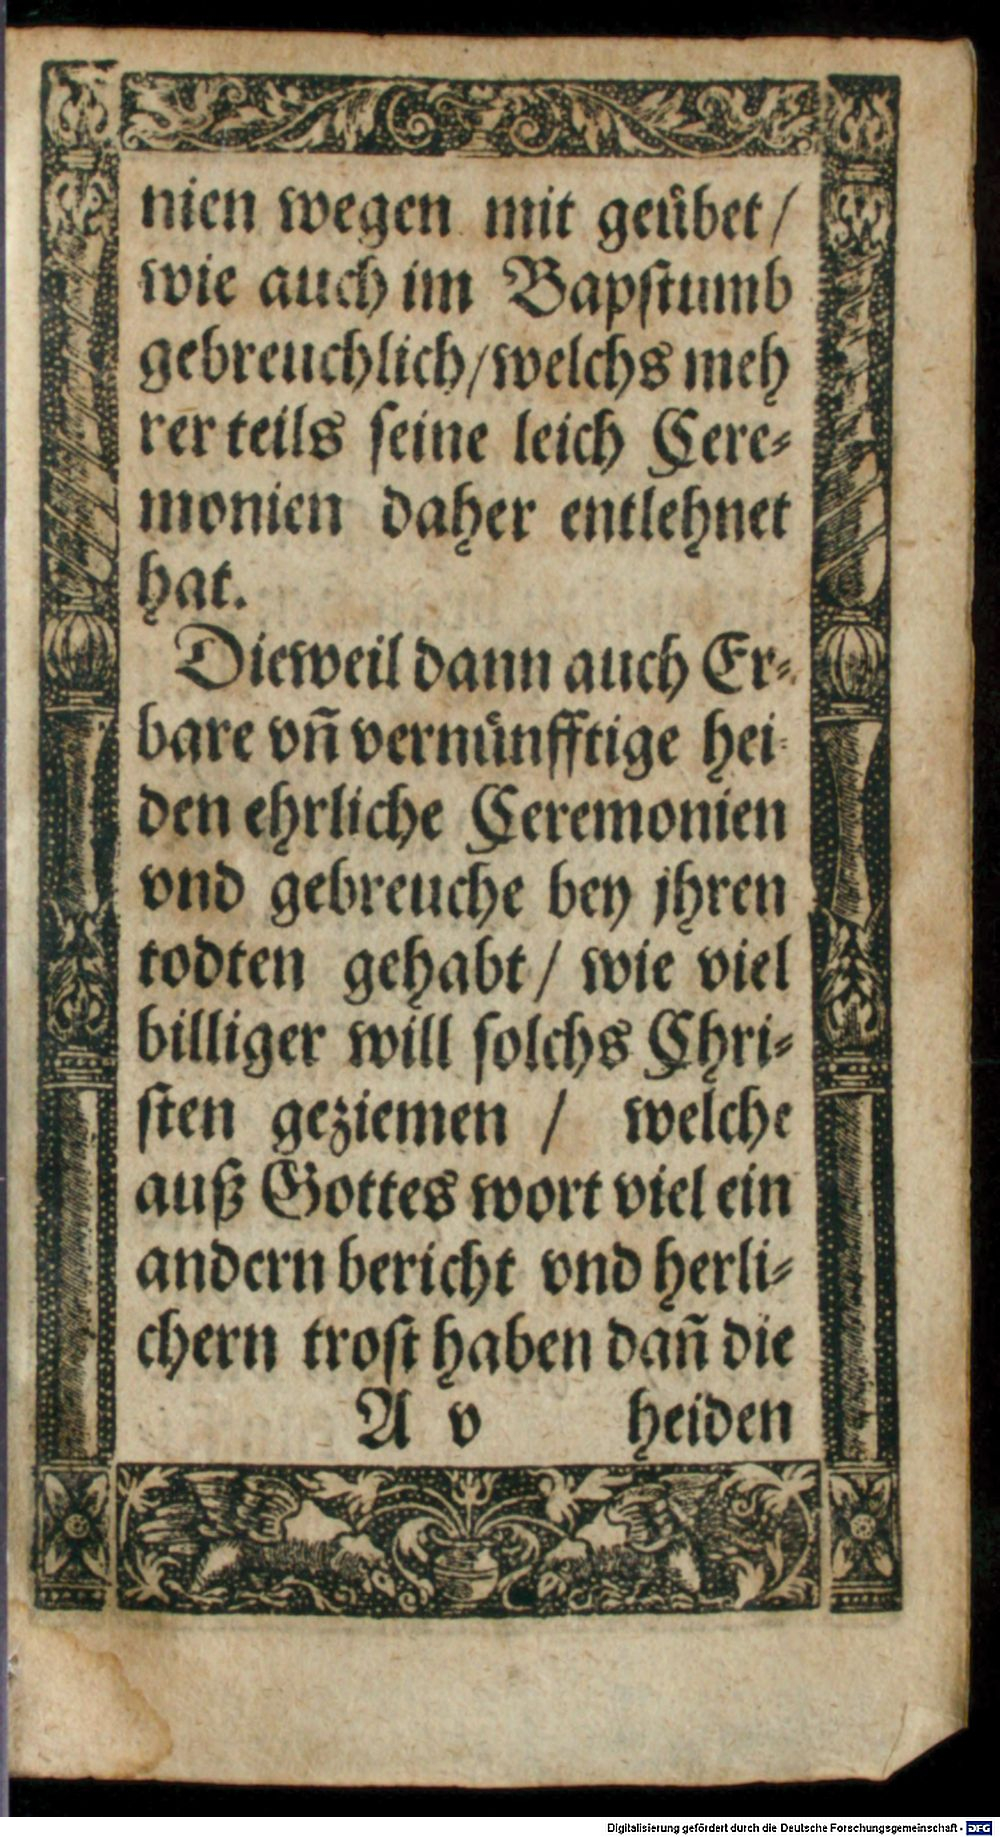 nien wegen mit geuͤbet /
wie auch im Bapſtumb
gebreuchlich / welchs meh
rer teils ſeine leich Cere⸗
monien daher entlehnet
hat.
Dieweil dann auch Er⸗
bare vñ vernuͤnfftige hei⸗
den ehrliche Ceremonien
vnd gebreuche bey jhren
todten gehabt / wie viel
billiger will ſolchs Chri⸗
ſten geziemen / welche
auß Gottes wort viel ein
andern bericht vnd herli⸗
chern troſt haben dañ die
A v heiden
Digitalisierung gefördert durch die Deutsche Forschungsgemeinschaft - DFG